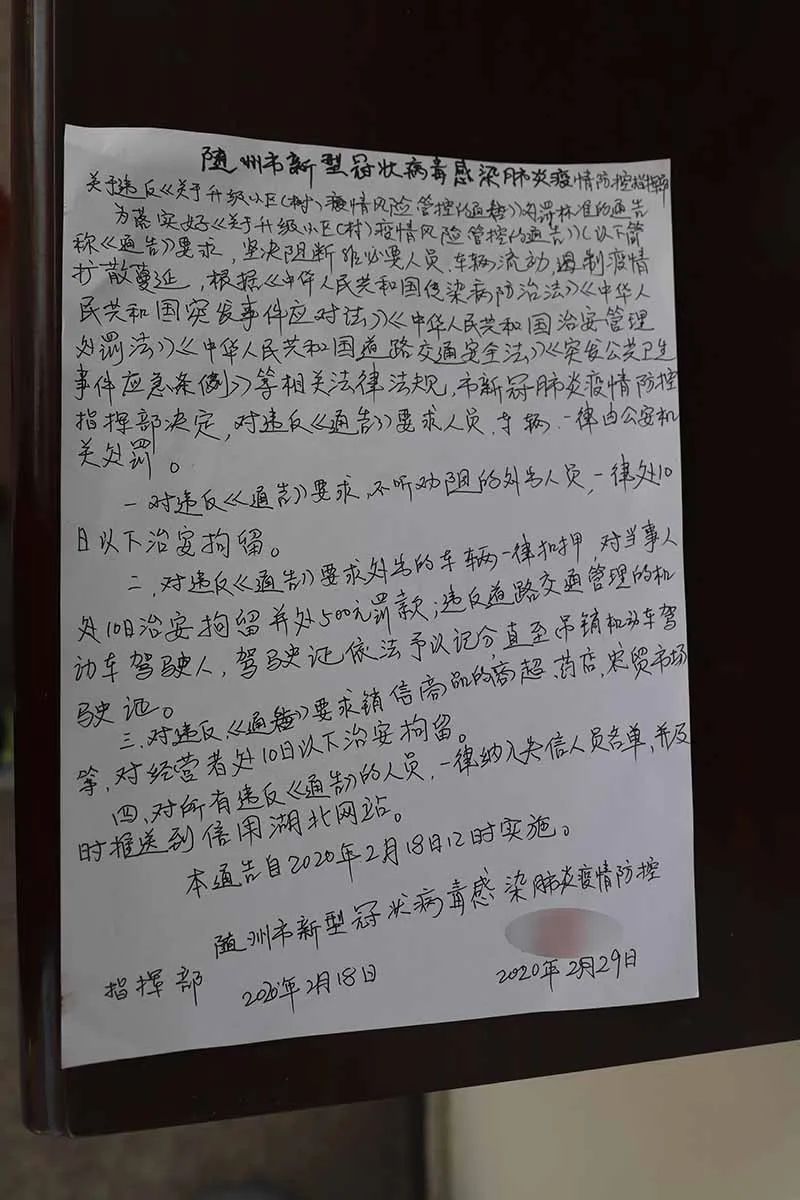 随州市新型冠状病毒感染肺炎疫情防控指挥部
关于违反《关于升级小区(村)疫情风险管控的通告》的罚标准的通告
为落实好《关于升级小区(村)疫情风险管控的通告》(以下简
称《通告》要求,坚决阻断非必要人员.车辆流动,遏制疫情
扩散蔓延,根据《中华人民共和国传染病防治法》《中华人
民共和国突发事件应对法》《中华人民共和国治安管理
处罚法》《中华人民共和国道路交通安全法》《突发公共卫生
事件应急条例》等相关法律法规,市新冠肺炎疫情防控
指挥部决定,对违反《通告》要求人员.车辆.一律由公安机
关处罚。
一对违反《通告》要求,不听劝阻的外出人员,一律处10
日以下治安拘留。
二.对违反《通告》要求外出的车辆一律扣押,对当事人
处10日治安拘留并处500元罚款;违反道路交通管理的机
动车驾驶人,驾驶证依法予以记分,直至吊销机动车驾
驶证。
三.对违反《通告》要求销信商品的商超.药店,农贸市场
等,对经营者处10日以下治安拘留。
四.对所有违反《通告》的人员,一律纳入失信人员名单,并及
时推送到信用湖北网站。
本通告自2020年2月18日12时实施。
随州市新型冠状病毒感染肺炎疫情防控
指挥部 2020年2月18日 2020年2月29日